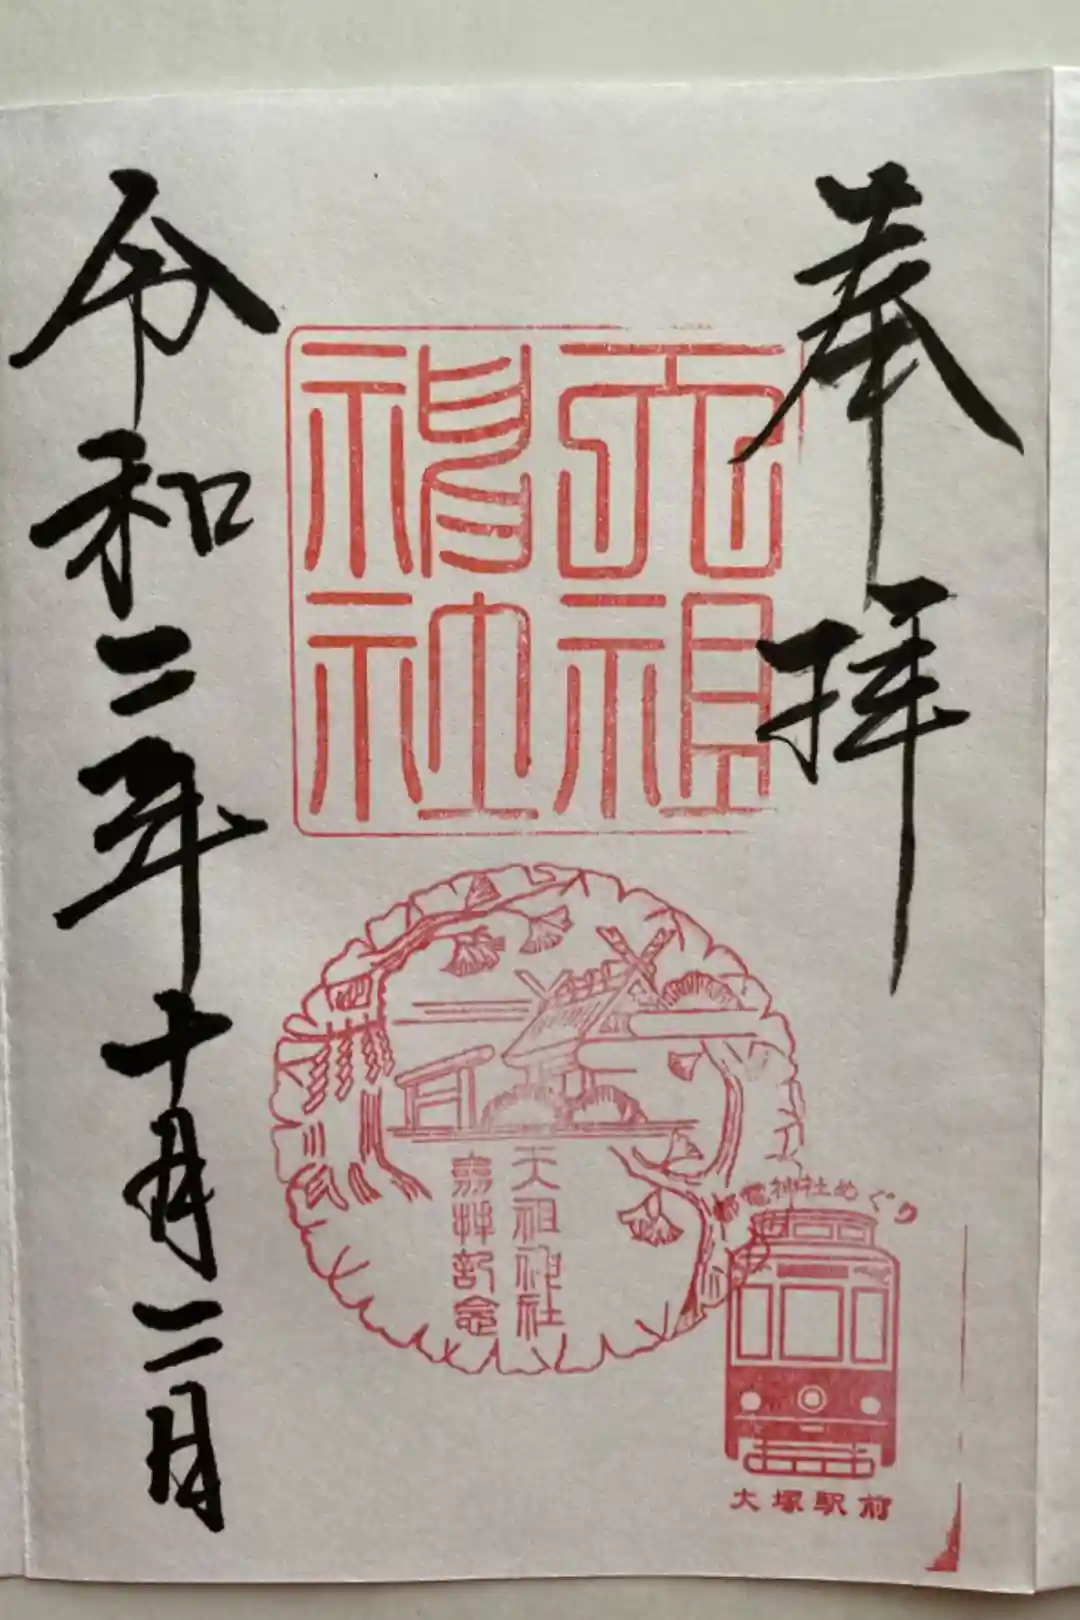 奉拝
天祖
神社
天祖神社
参拝記念
都電神社めぐり
大塚駅前
令和二年十月二日